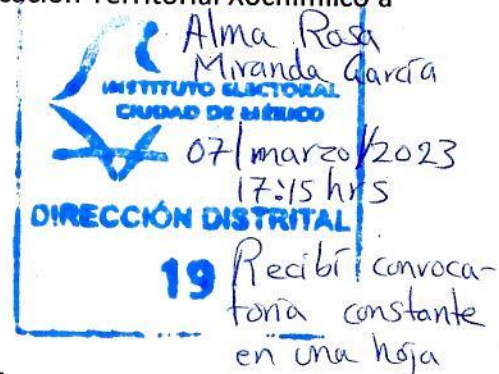 cación Territorial Xochimilco a
Alma Rosa
Miranda García
INSTITUTO ELECTORAL
CIUDAD DE MÉXICO
07/marzo/2023
17:15 hrs
DIRECCIÓN DISTRITAL
19
Recibí convoca-
toria constante
en una hoja